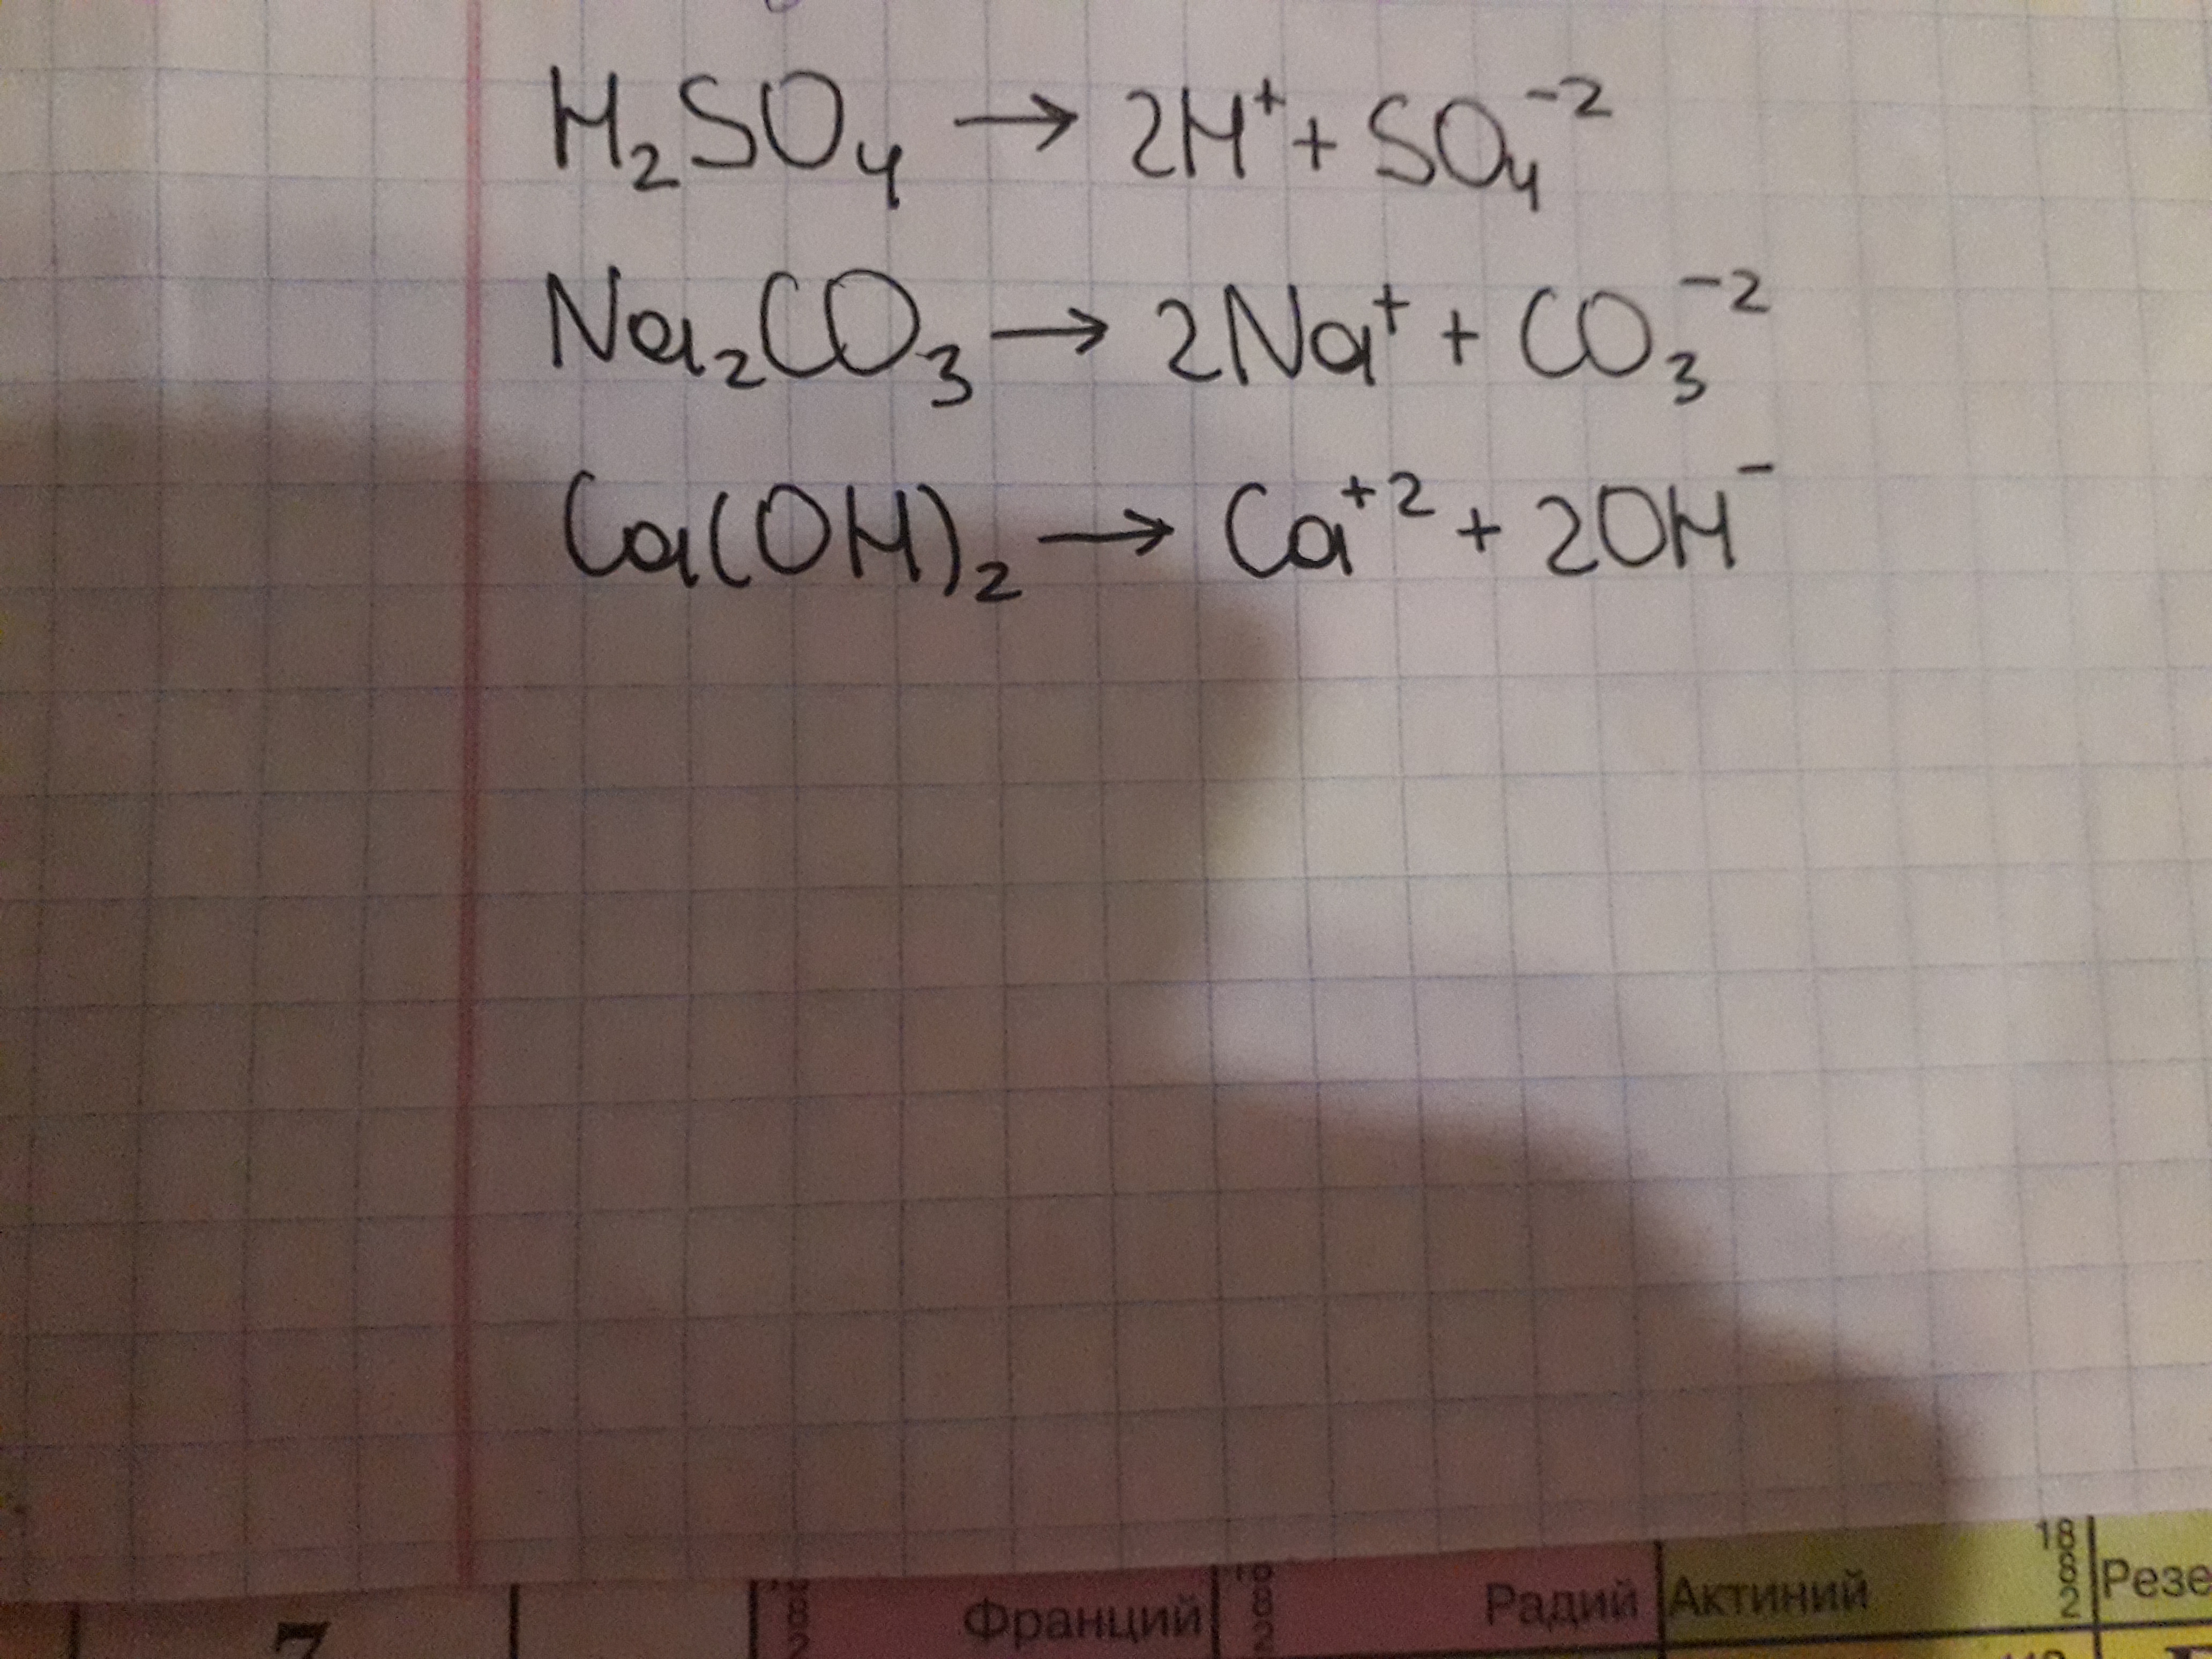 H₂SO₄ → 2H⁺ + SO₄⁻²
Na₂CO₃ → 2Na⁺ + CO₃⁻²
Ca(OH)₂ → Ca⁺² + 2OH⁻
7 Франций Радий Актиний 18 8 2